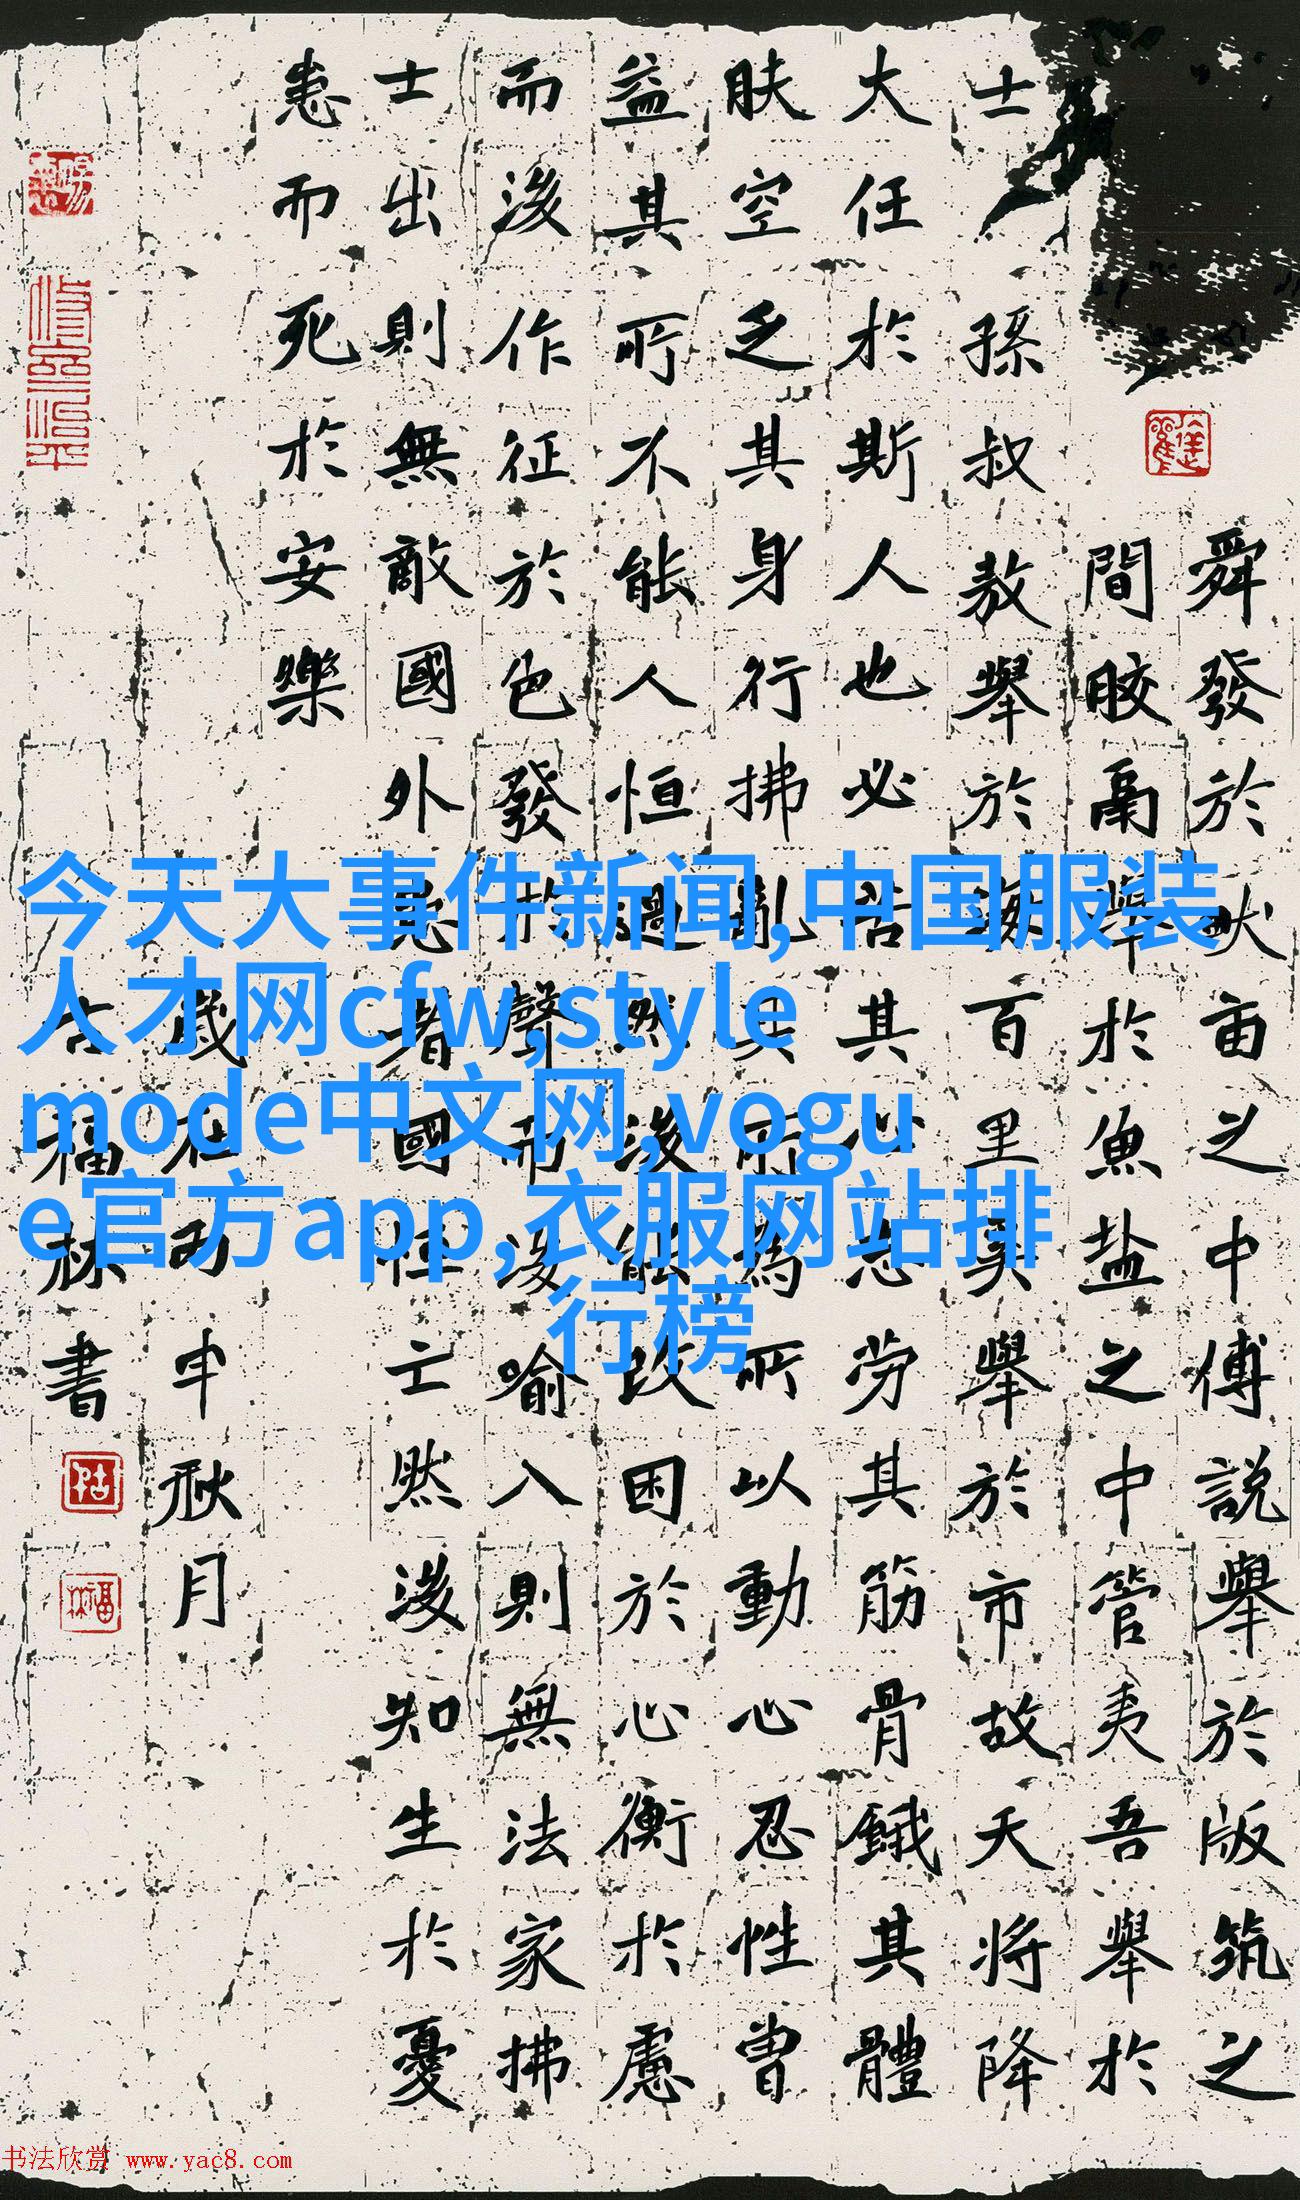 舜發於畎亩之中傅説舉於版筑之
間胶鬲舉於魚盐之中管夷吾舉於
士孫叔敖舉於海百里奚舉於市故天将降
大任於斯人也必苦其心志劳其筋骨餓其體
肤空乏其身行拂亂其所為所以動心忍性曾
益其所不能人恒過然後能改困於心衡於慮
而後作征於色發於聲而後喻入則無法家拂
士出則無敵國外患者國恒亡然後知生於憂
患而死於安樂
歲在丙申秋月
福林書
今天大事件新闻,中国服装
人才网cfw,style
mode中文网,vogu
e官方app,衣服网站排
行榜
书法欣赏 www.yac8.com